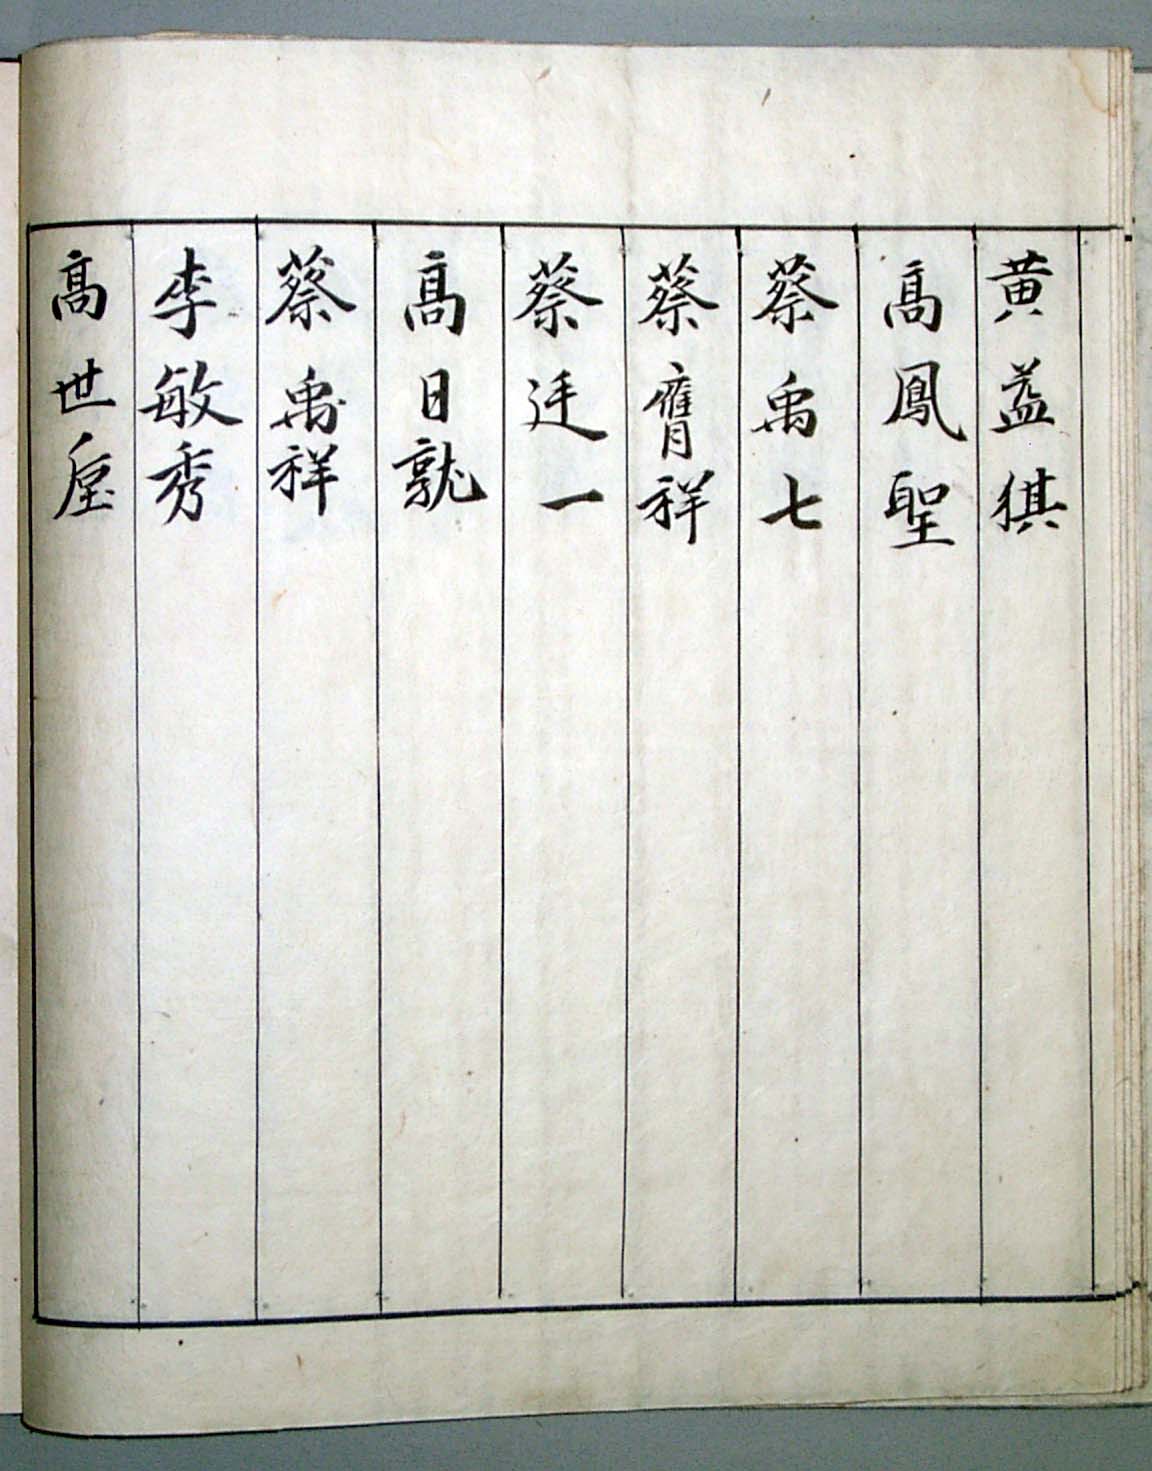 黄益猉
髙鳳聖
蔡禹七
蔡膺祥
蔡廷一
髙日就
蔡禹祥
李敏秀
髙世